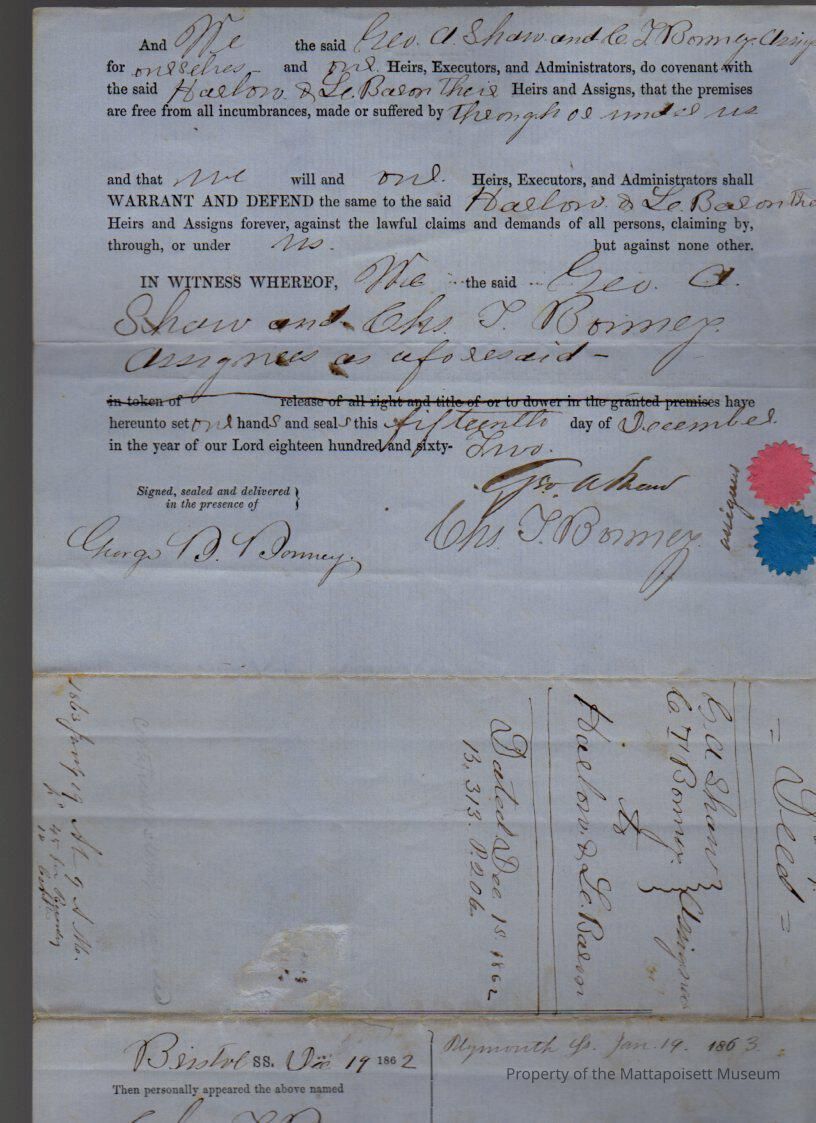 And We the said Geo. A Shaw and C. T Bonney Assig
for ourselves and our Heirs, Executors, and Administrators, do covenant with
the said Harlow & Le Baron their Heirs and Assigns, that the premises
are free from all incumbrances, made or suffered by through or under us
and that we will and our Heirs, Executors, and Administrators shall
WARRANT AND DEFEND the same to the said Harlow & Le Baron the
Heirs and Assigns forever, against the lawful claims and demands of all persons, claiming by,
through, or under us. but against none other.
IN WITNESS WHEREOF, We the said Geo. A.
Shaw and Chs. T. Bonney.
Assignees as aforesaid -
in token of release of all right and title of or to dower in the granted premises have
hereunto set our hands and seals this fifteenth day of December
in the year of our Lord eighteen hundred and sixty- Two.
Signed, sealed and delivered }
in the presence of
Geo. A Shaw
Chs. T. Bonney
assignees
George B. Bonney.
= Deed =
G A Shaw }
C. T Bonney } Assignees
To
Harlow & Le Baron
Dated Dec 15 1862
B. 313. P. 206.
1863 Jany 19 At 9 A M.
Bristol SS. Dec 19 1862
Then personally appeared the above named
Plymouth Ss. Jan. 19. 1863
Property of the Mattapoisett Museum